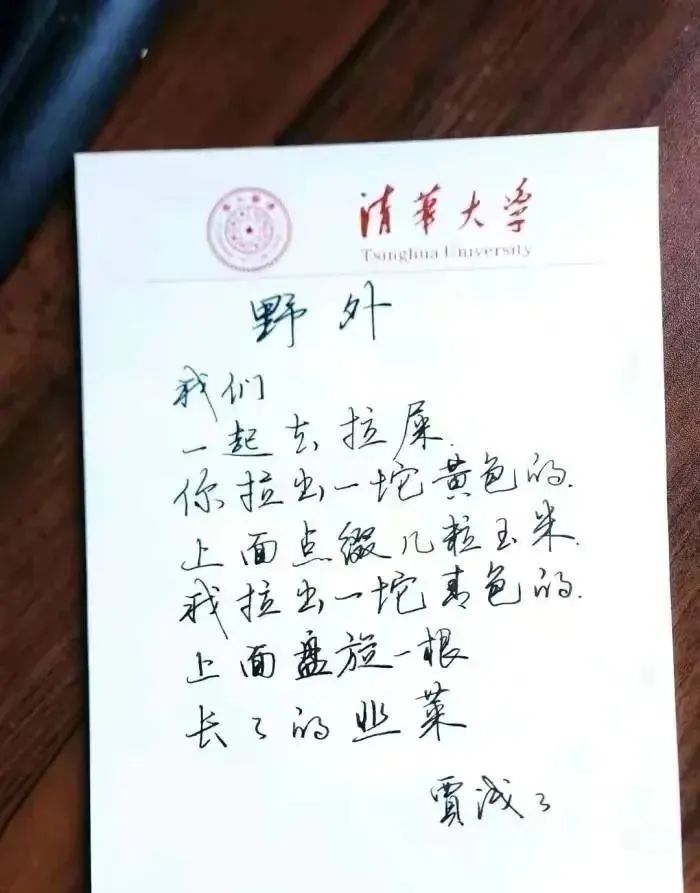 清华大学
Tsinghua University
野外
我们
一起去拉屎.
你拉出一坨黄色的.
上面点缀几粒玉米.
我拉出一坨青色的.
上面盘旋一根
长长的韭菜
贾浅浅